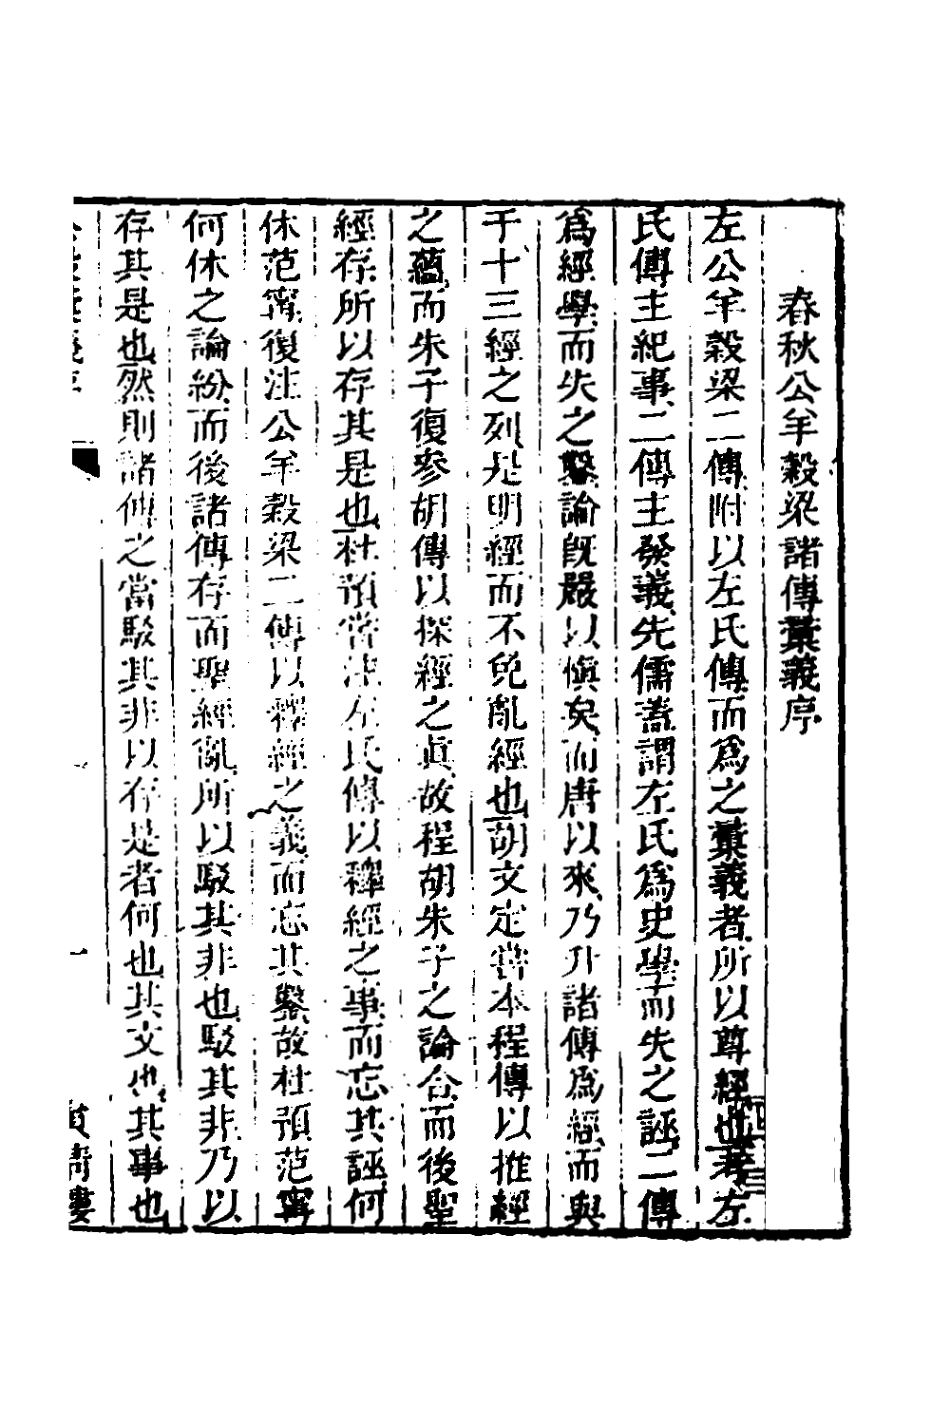 春秋公羊穀梁諸傳彚義序
左公羊穀梁二傳附以左氏傳而爲之彚義者所以尊經也若左
氏傳主紀事二傳主發義先儒蓋謂左氏爲史學而失之誣二傳
爲經學而失之鑿論旣嚴以愼矣而唐以來乃升諸傳爲經而與
于十三經之列是明經而不免亂經也胡文定嘗本程傳以推經
之蘊而朱子復參胡傳以探經之眞故程胡朱子之論合而後聖
經存所以存其是也杜預嘗注左氏傳以釋經之事而忘其誣何
休范甯復注公羊穀梁二傳以釋經之義而忘其鑿故杜預范甯
何休之論紛而後諸傳存而聖經亂所以駁其非也駁其非乃以
存其是也然則諸傳之當駁其非以存是者何也其文也其事也